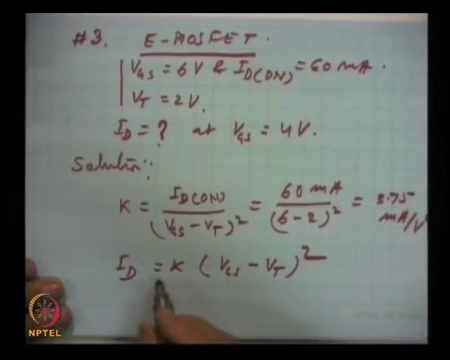 #3. E-MOSFET.
V_GS = 6V & I_D(ON) = 60 mA.
V_T = 2V.
I_D = ? at V_GS = 4V.
Solution:
K = I_D(ON) / (V_GS - V_T)^2 = 60 mA / (6-2)^2 = 3.75 mA/V
I_D = K (V_GS - V_T)^2
NPTEL